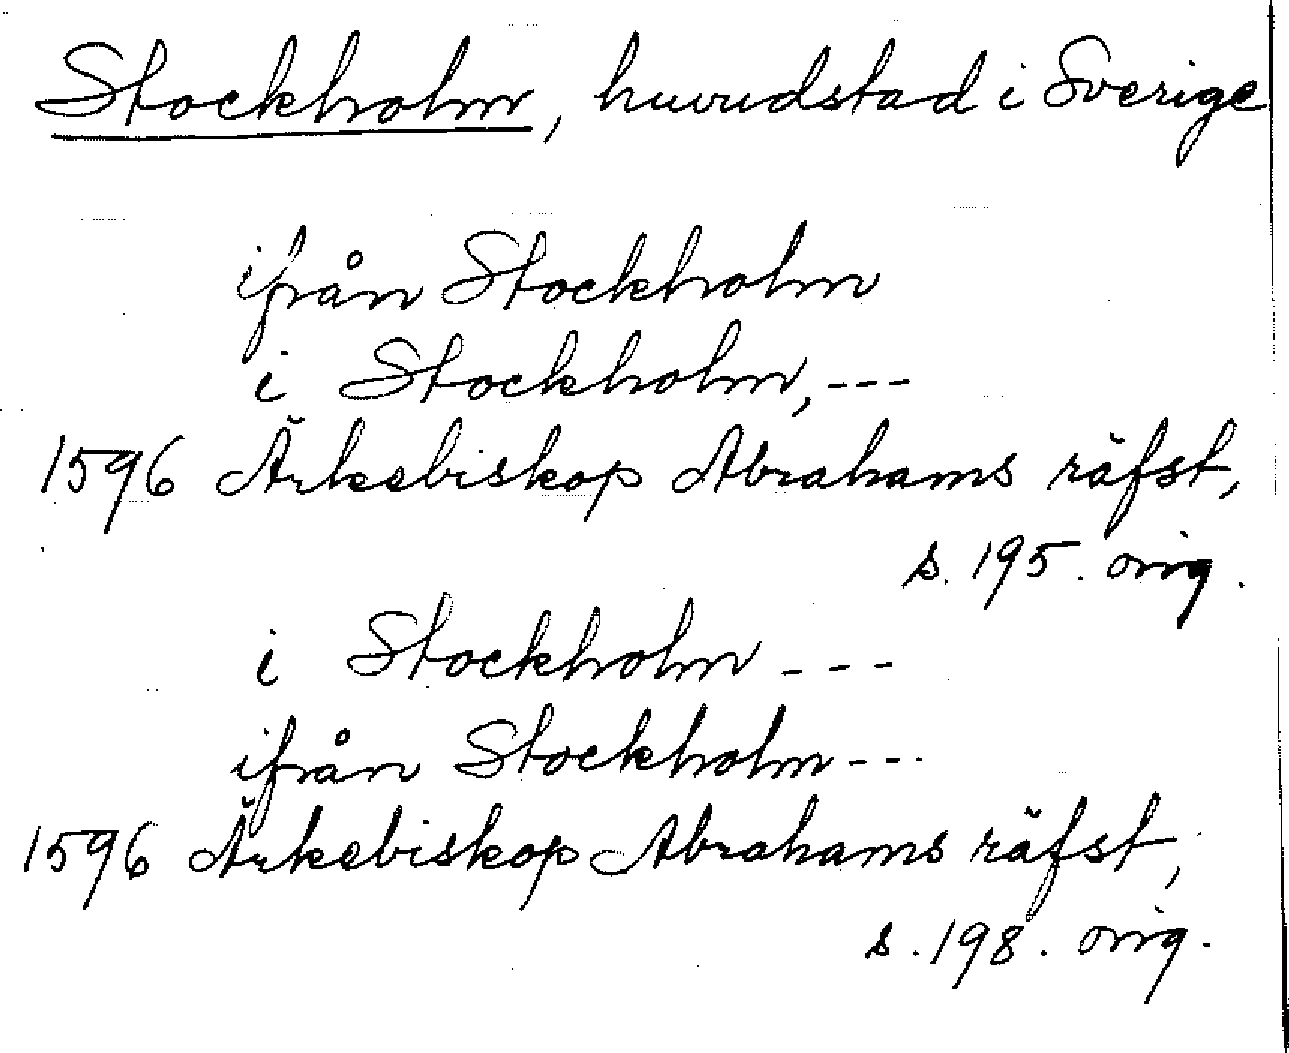 Stockholm, huvudstad i Sverige
ifrån Stockholm
i Stockholm, ---
1596 Ärkebiskop Abrahams räfst,
s. 195. orig.
i Stockholm ---
ifrån Stockholm ---
1596 Ärkebiskop Abrahams räfst,
s. 198. orig.